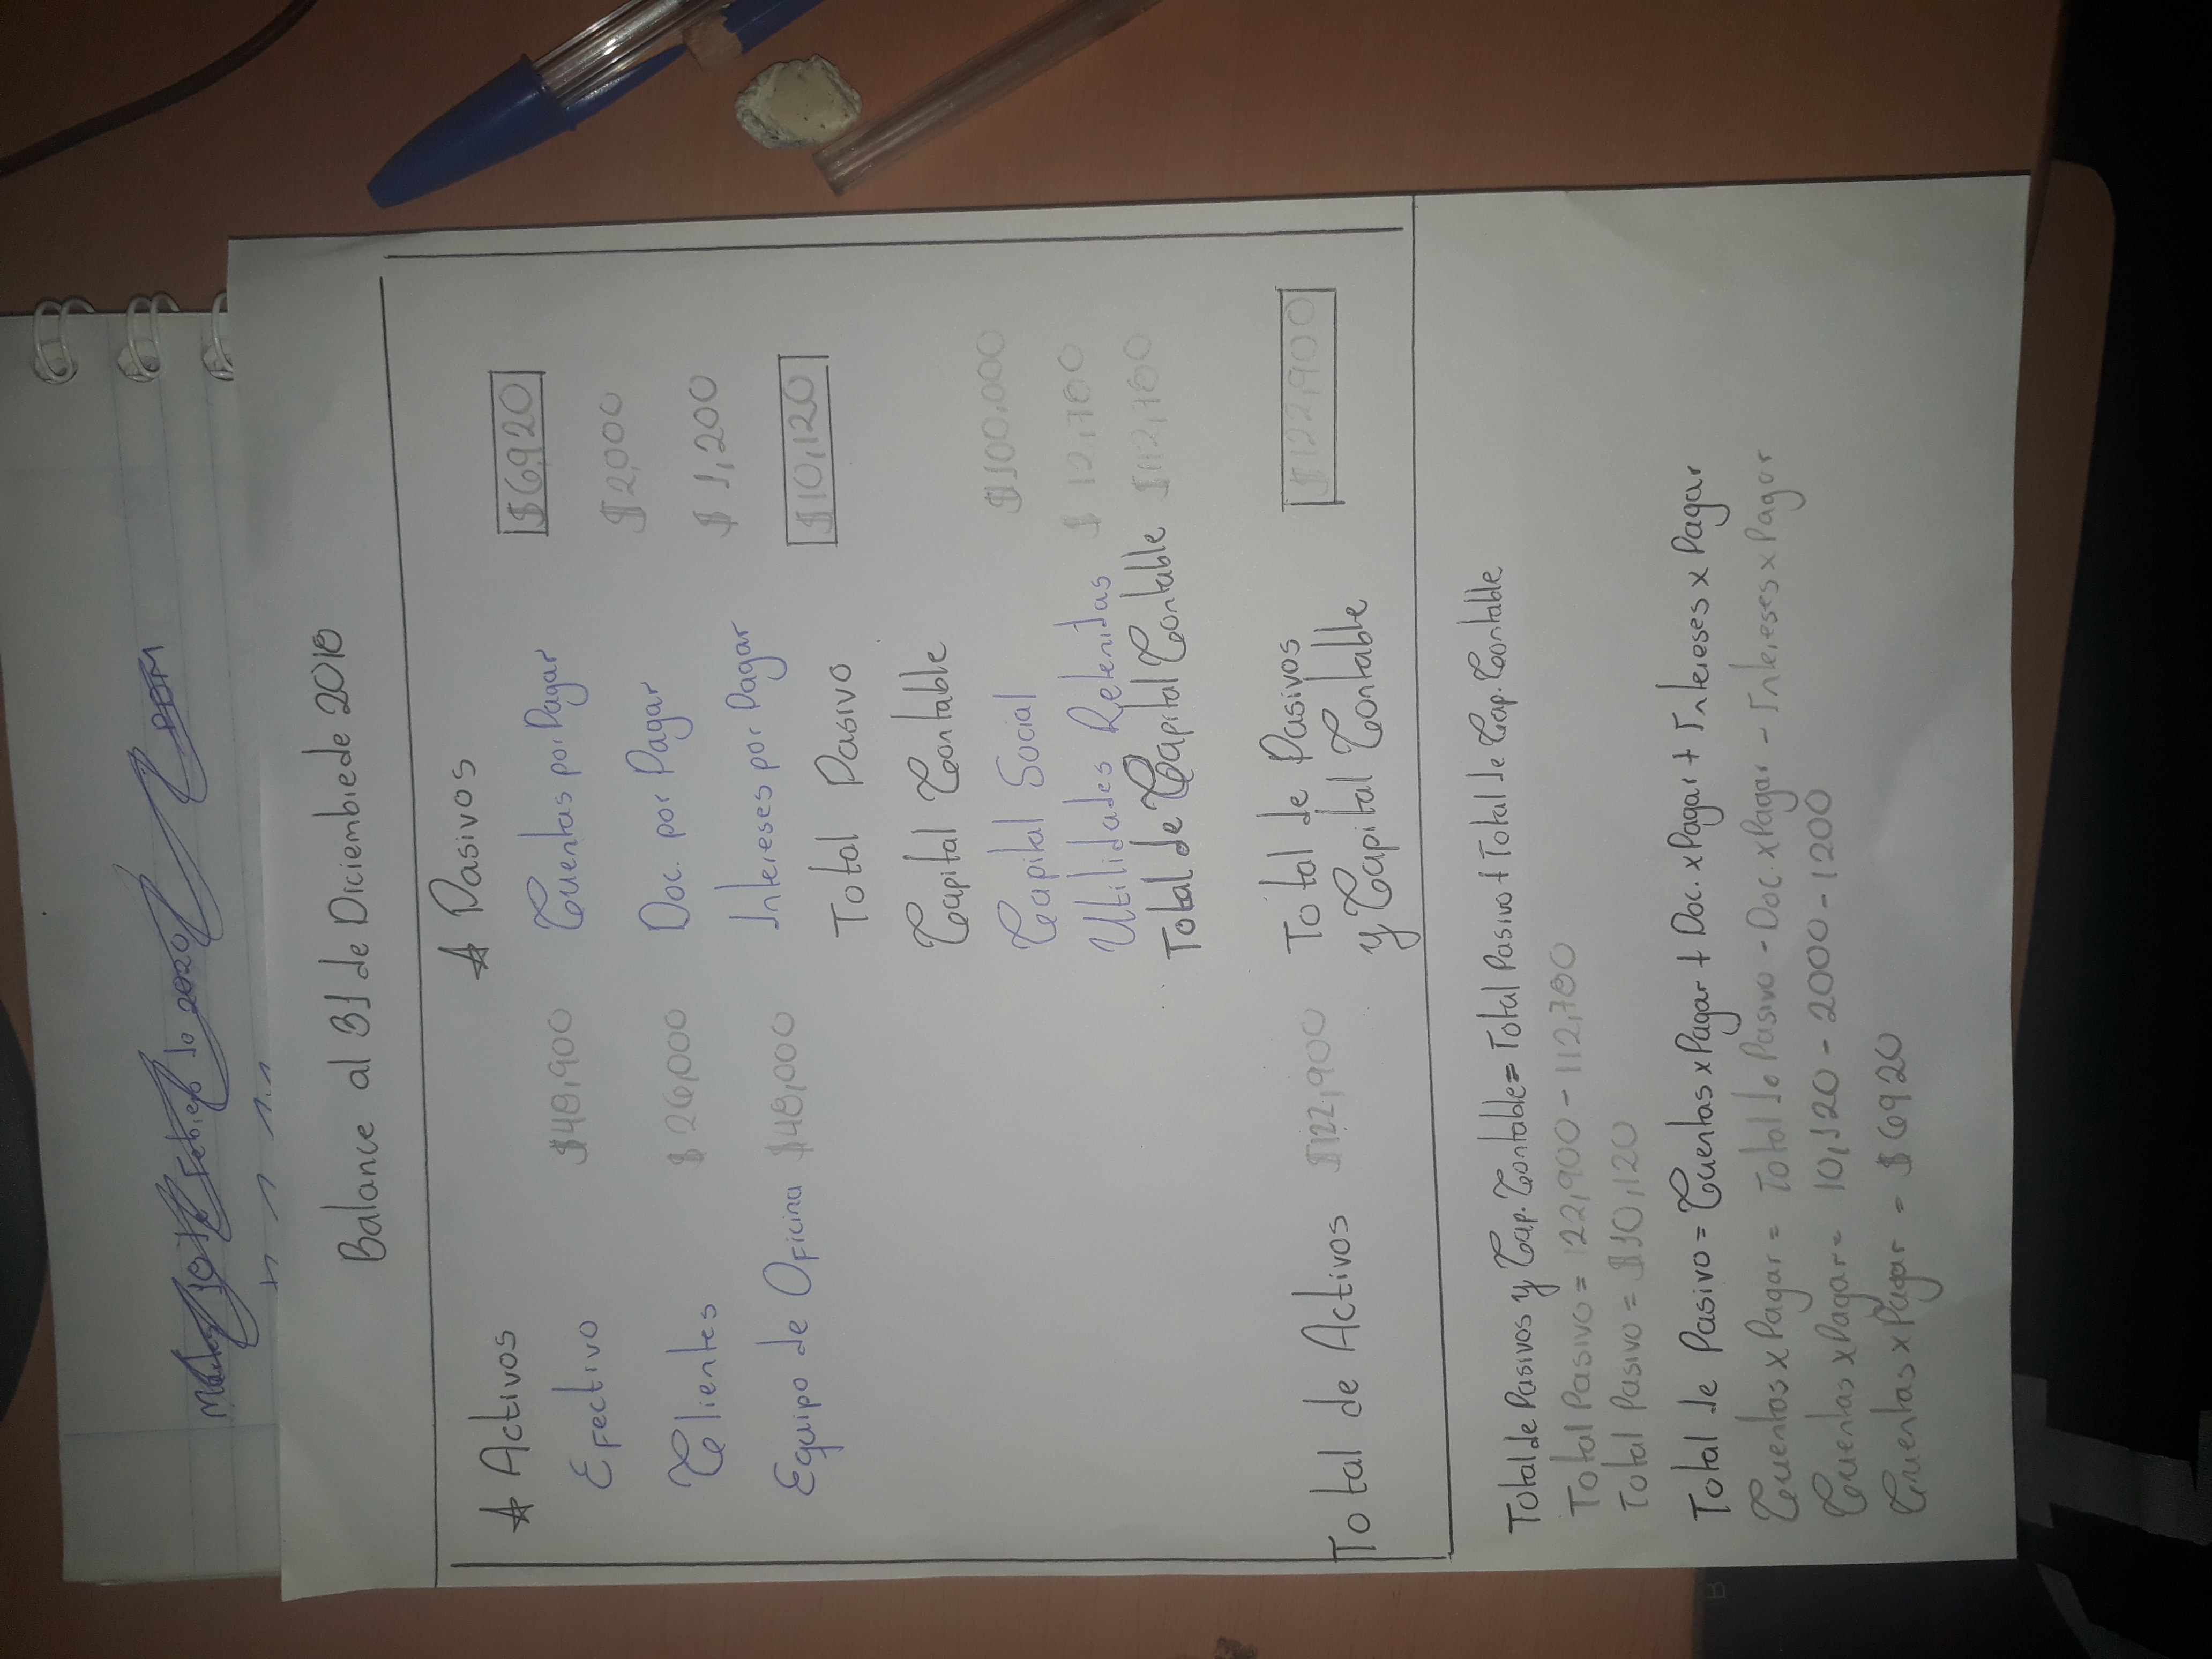 Febrero de 2020
Balance al 31 de Diciembre de 2018
Activos
Efectivo $48,900
Clientes $26,000
Equipo de Oficina $48,000
Total de Activos $122,900
Pasivos
Cuentas por Pagar $6920
Doc. por Pagar $2,000
Intereses por Pagar $1,200
Total Pasivo $10,120
Capital Contable
Capital Social $100,000
Utilidades Retenidas $12,780
Total de Capital Contable $112,780
Total de Pasivos
y Capital Contable $122,900
Total de Pasivos y Cap. Contable = Total Pasivo + Total de Cap. Contable
Total Pasivo = 122,900 - 112,780
Total Pasivo = $10,120
Total de Pasivo = Cuentas x Pagar + Doc. x Pagar + Intereses x Pagar
Cuentas x Pagar = Total de Pasivo - Doc. x Pagar - Intereses x Pagar
Cuentas x Pagar = 10,120 - 2000 - 1200
Cuentas x Pagar = $6920